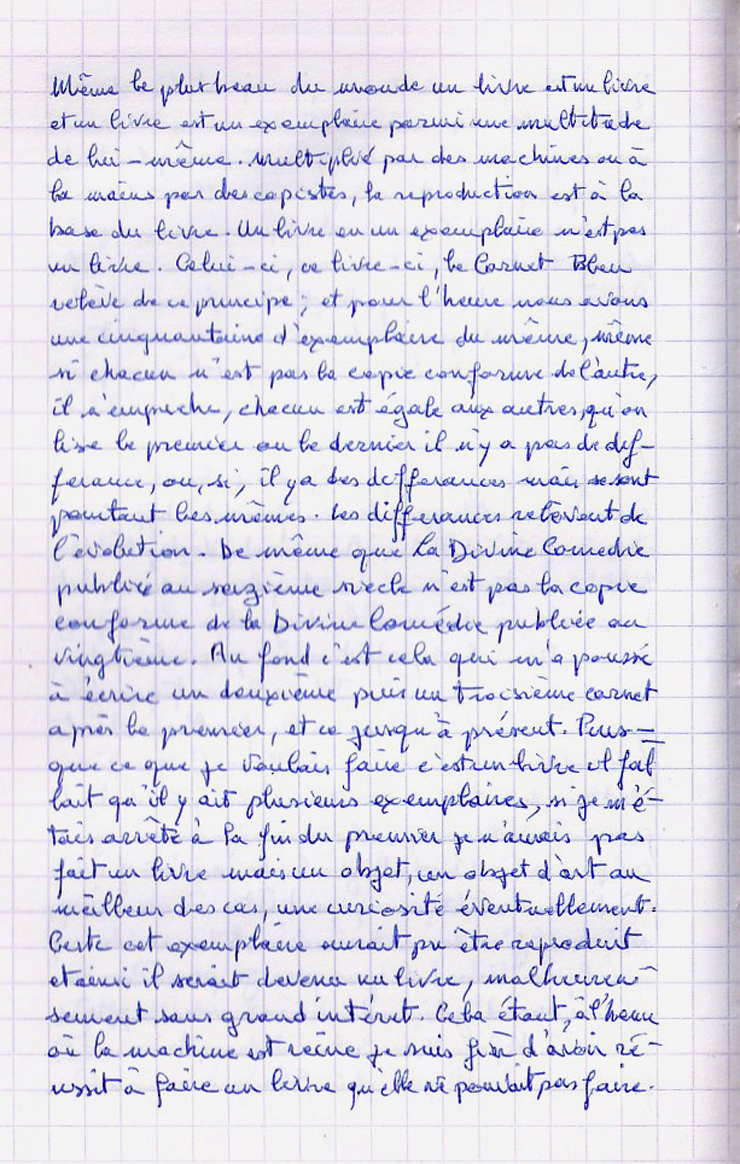 Même le plus beau du monde un livre est un livre
et un livre est un exemplaire parmi une multitude
de lui-même. Multiplié par des machines ou à
la mains par des copistes, la reproduction est à la
base du livre. Un livre en un exemplaire n'est pas
un livre. Celui-ci, ce livre-ci, le Carnet Bleu
relève de ce principe; et pour l'heure nous avons
une cinquantaine d'exemplaire du même, même
si chacun n'est pas la copie conforme de l'autre,
il n'empeche, chacun est égale aux autres, qu'on
lise le premier ou le dernier il n'y a pas de dif-
ferance, ou, si, il y a des differances mais se sont
pourtant les mêmes. Les differances relèvent de
l'évolution. De même que La Divine Comedie
publiée au seizième siecle n'est pas la copie
conforme de la Divine Comédie publiée au
vingtième. Au fond c'est cela qui m'a poussé
à écrire un deuxième puis un troisième carnet
après le premier, et ce jusqu'à présent. Puis-
que ce que je voulais faire c'est un livre il fal
lait qu'il y ait plusieurs exemplaires, si je m'é-
tais arrêté à la fin du premier je n'aurais pas
fait un livre mais un objet, un objet d'art au
meilleur des cas, une curiosité éventuellement.
Certe cet exemplaire aurait pu être reproduit
et ainsi il serait devenu un livre, malheureu-
sement sans grand intéret. Cela étant, à l'heure
où la machine est reine je suis fier d'avoir ré-
ussit à faire un livre qu'elle ne pouvait pas faire.